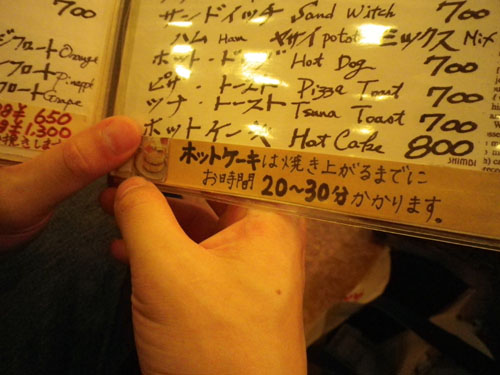 700
サンドイッチ Sand Witch 700
ハム Ham ヤサイ potato ミックス Mix
ホット・ドッグ Hot Dog 700
ピザ・トースト Pizza Toast 700
ツナ・トースト Tsuna Toast 700
ホットケーキ Hot Cake 800
ホットケーキは焼き上がるまでに
お時間20〜30分かかります。
フロート Orange
フロート
フロート Grape
¥650
¥1,300